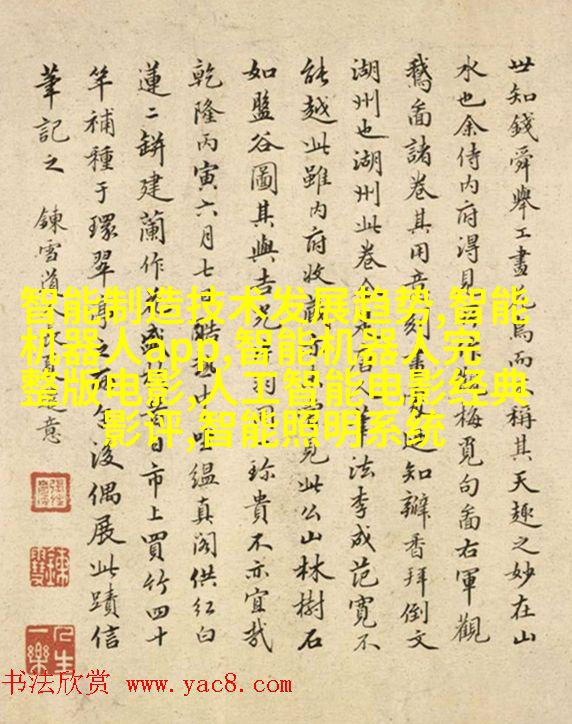 世知錢舜舉工畫鳥而稱其天趣之妙在山
水也余侍內府得見梅覓句畵右軍觀
鵝畵諸卷其用意刻知瓣香拜倒文
湖州也湖州此卷法李成范寬不
能越此雖內府收藏見此公山林樹石
如盤谷圖其與吉珍貴不亦宜哉
乾隆丙寅六月七縕真閣供紅白
蓮二缾建蘭作盛日市上買竹四十
竿補種于環翠亭之西後偶展此蹟信
筆記之 鍊雪道意
人生一樂
智能制造技术发展趋势,智能
机器人app,智能机器人完
整版电影,人工智能电影经典
影评,智能照明系统
书法欣赏 www.yac8.com